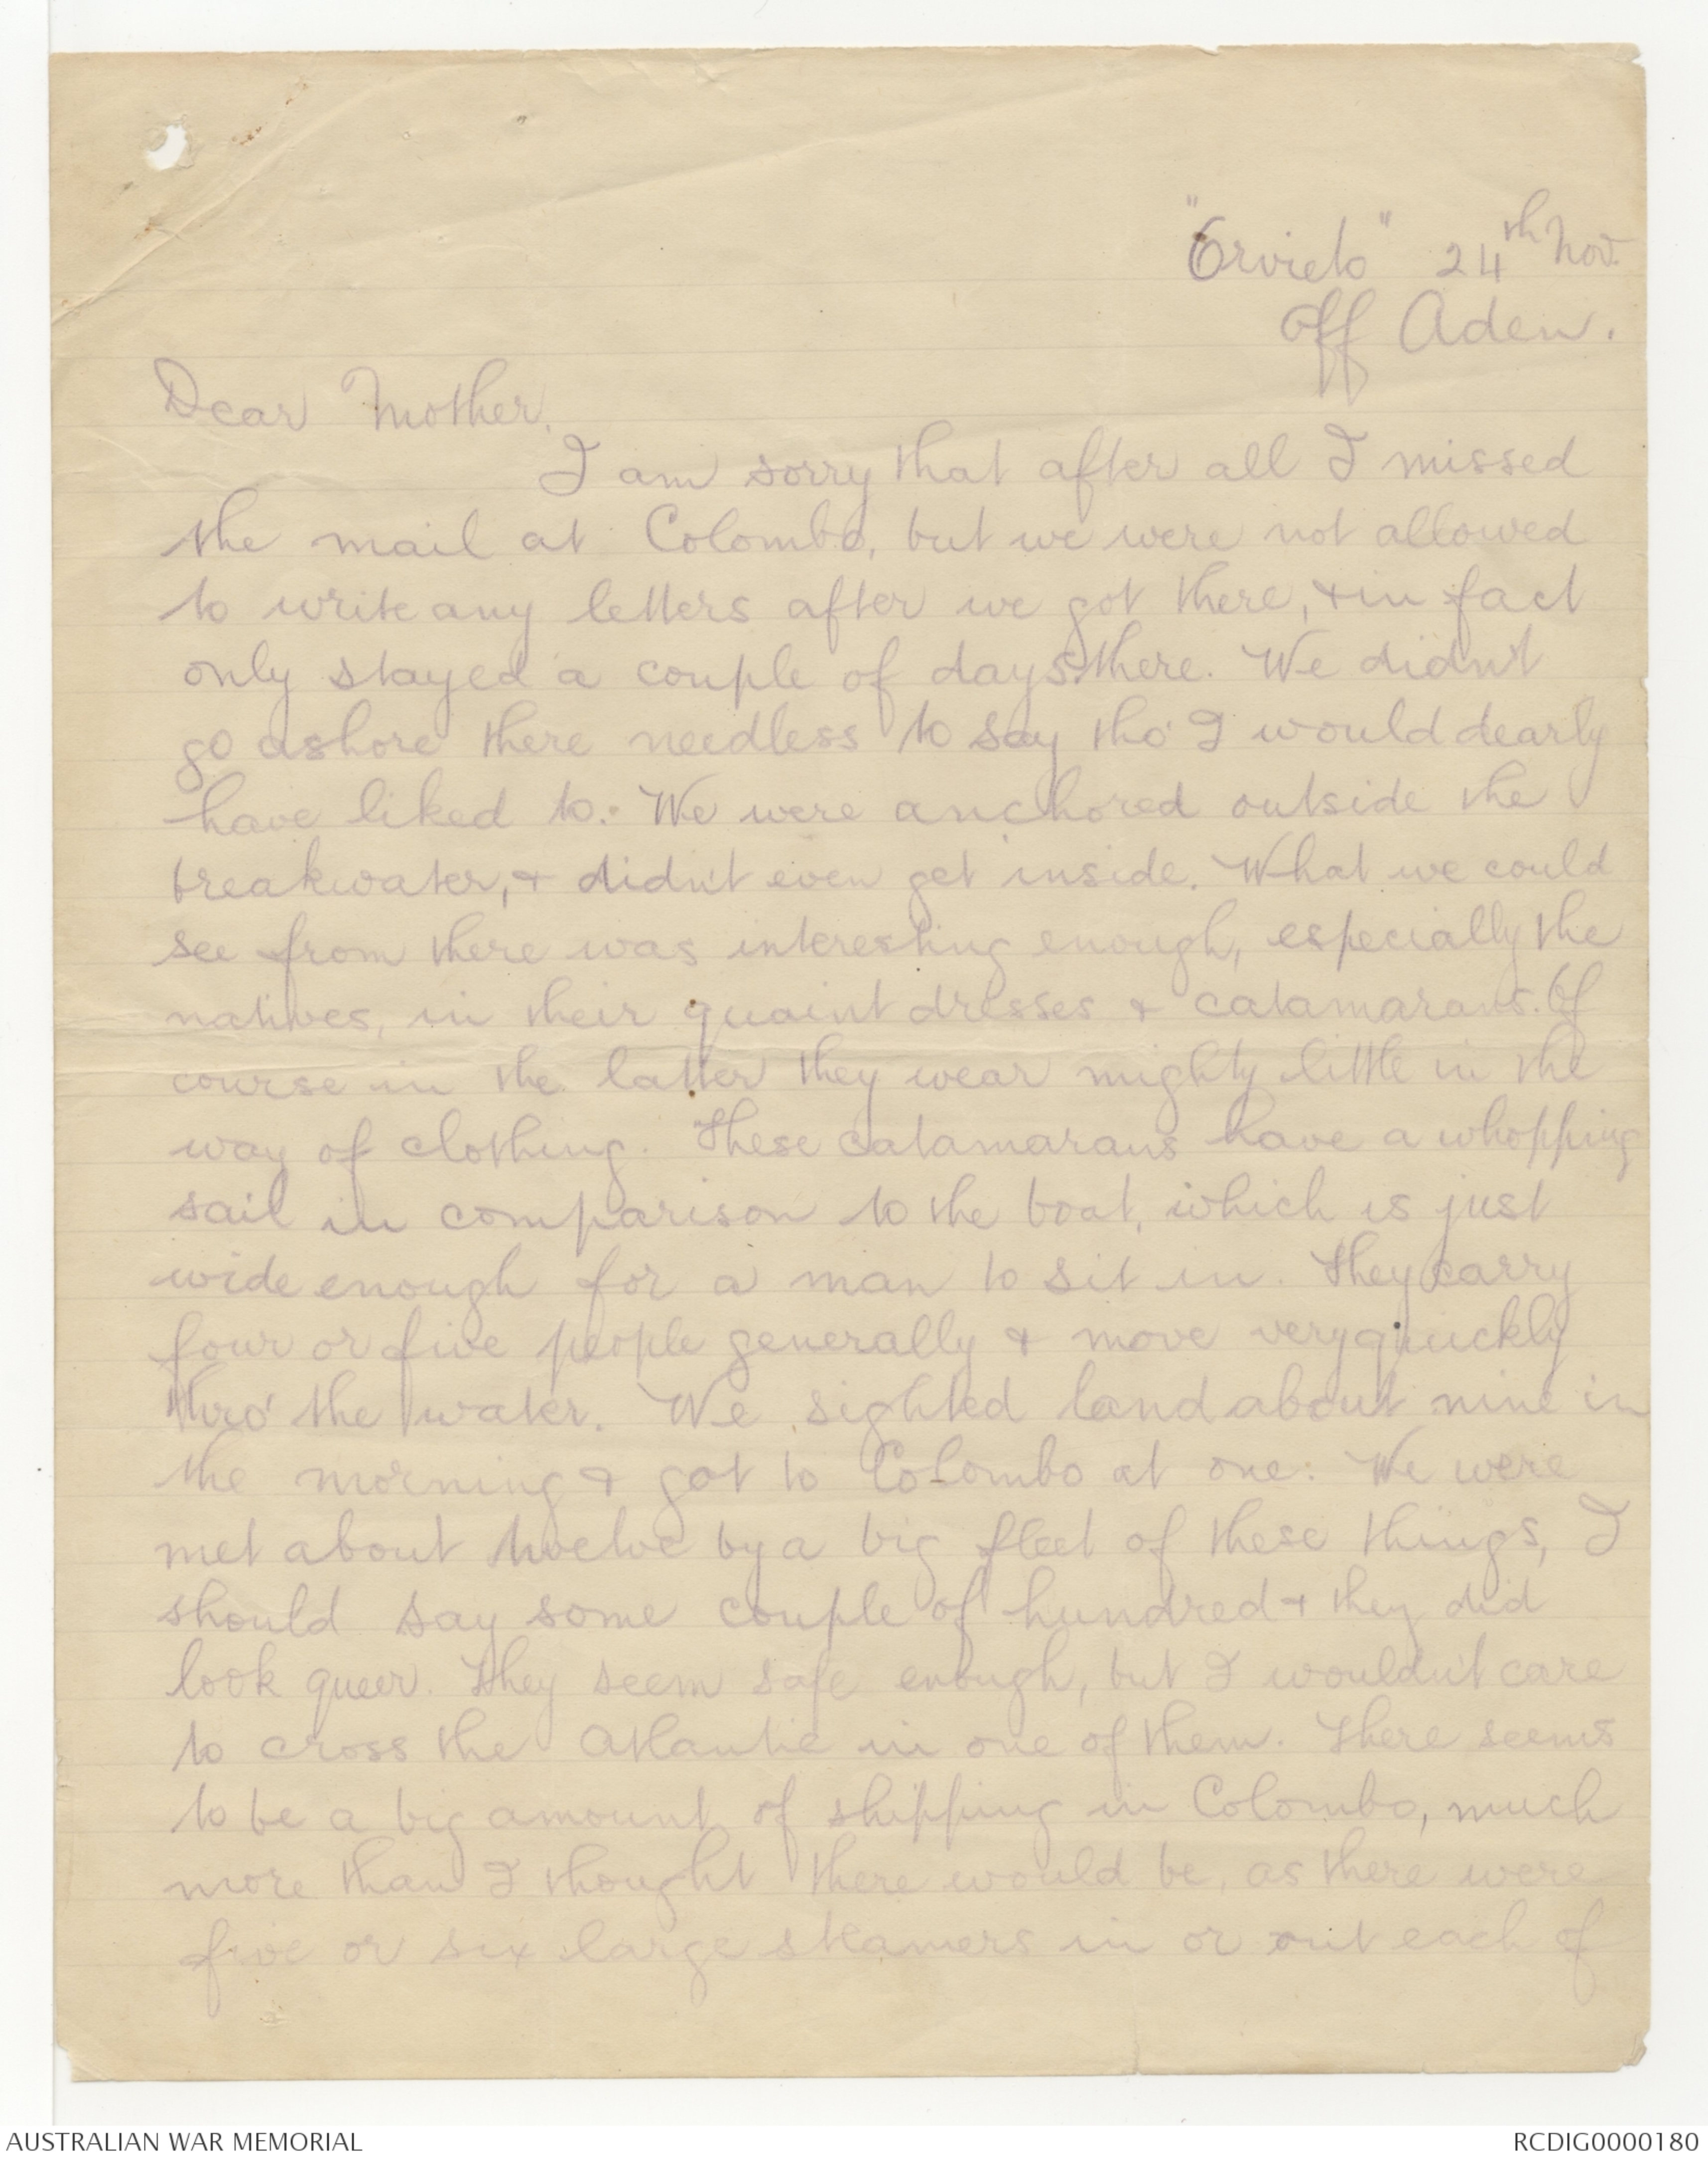 "Orvieto" 24th Nov.
Off Aden.
Dear Mother,
I am sorry that after all I missed
the mail at Colombo, but we were not allowed
to write any letters after we got there, & in fact
only stayed a couple of days there. We didn't
go ashore there needless to say tho' I would dearly
have liked to. We were anchored outside the
breakwater, & didn't even get inside. What we could
see from there was interesting enough, especially the
natives, in their quaint dresses & catamarans. Of
course in the latter they wear mighty little in the
way of clothing. These catamarans have a whopping
sail in comparison to the boat, which is just
wide enough for a man to sit in. They carry
four or five people generally & move very quickly
thro' the water. We sighted land about nine in
the morning & got to Colombo at one: We were
met about twelve by a big fleet of these things, I
should say some couple of hundred & they did
look queer. They seem safe enough, but I wouldn't care
to cross the Atlantic in one of them. There seems
to be a big amount of shipping in Colombo, much
more than I thought there would be, as there were
five or six large steamers in or out each of
AUSTRALIAN WAR MEMORIAL
RCDIG0000180